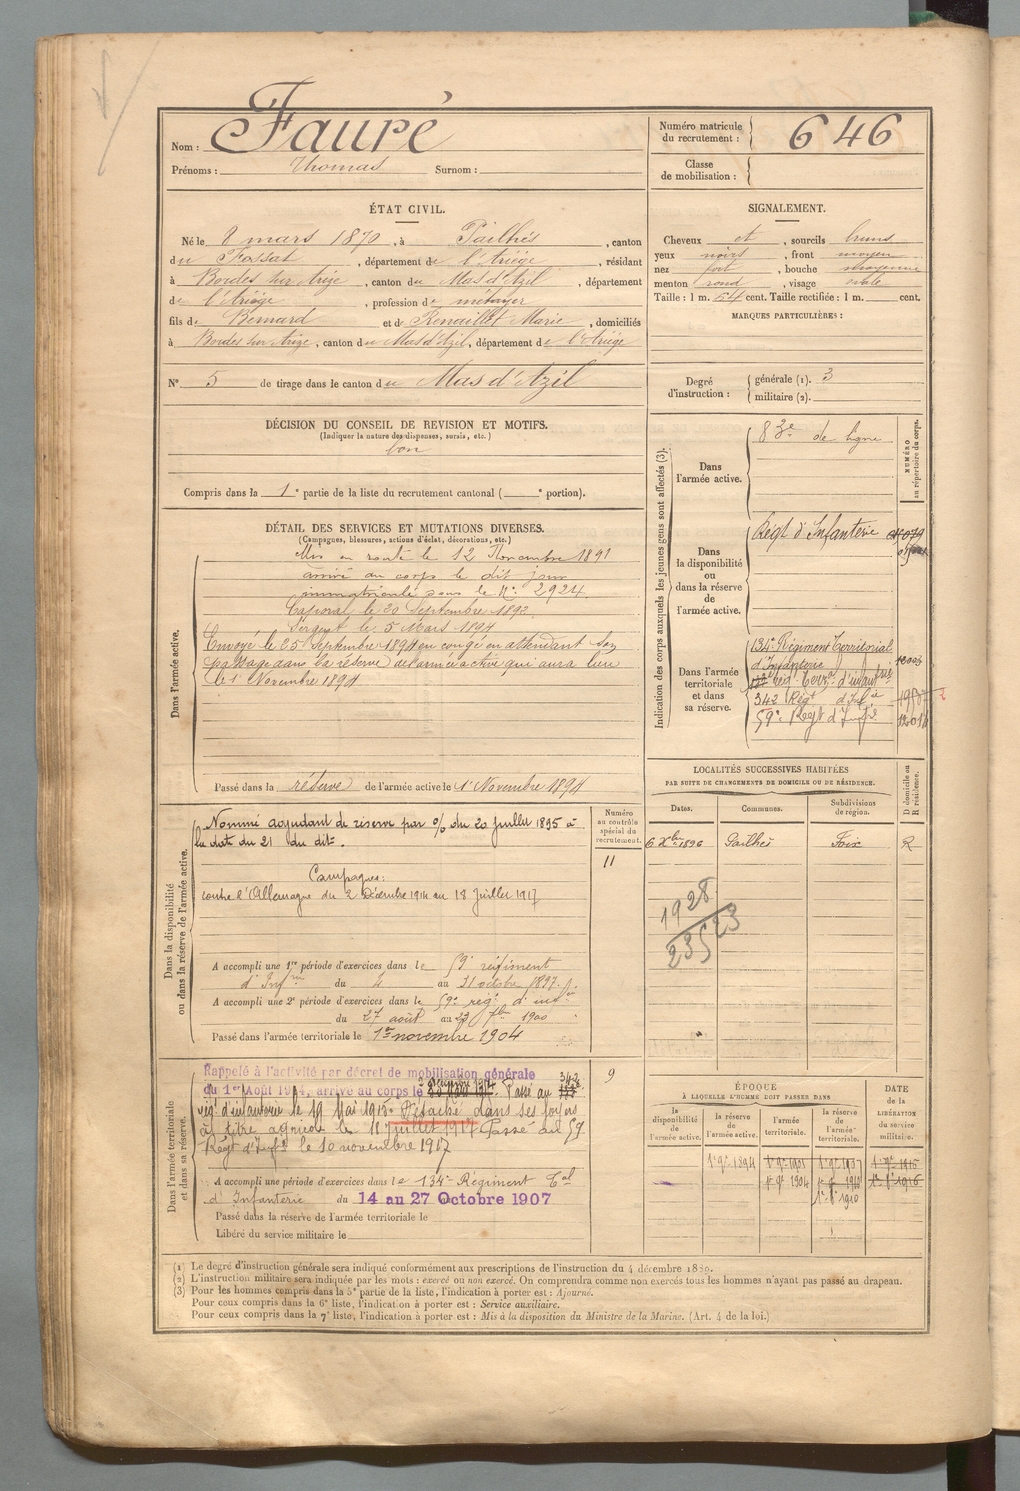 Nom : Fauré
Prénoms : Thomas Surnom :
Numéro matricule du recrutement : 646
Classe de mobilisation :
ÉTAT CIVIL.
Né le 8 mars 1870, à Pailhés, canton
du Fossat, département de l'Ariège, résidant
à Bordes sur Arize, canton du Mas d'Azil, département
de l'Ariège, profession de métayer
fils de Bernard et de Renaillet Marie, domiciliés
à Bordes sur Arize, canton du Mas d'Azil, département de l'Ariège
N° 5 de tirage dans le canton du Mas d'Azil
SIGNALEMENT.
Cheveux et, sourcils bruns
yeux noirs, front moyen
nez fort, bouche moyenne
menton rond, visage ovale
Taille : 1 m. 64 cent. Taille rectifiée : 1 m. cent.
MARQUES PARTICULIÈRES :
Degré d'instruction : générale (1). 3
militaire (2).
DÉCISION DU CONSEIL DE REVISION ET MOTIFS.
(Indiquer la nature des dispenses, sursis, etc.)
bon
Compris dans la 1e partie de la liste du recrutement cantonal ( e portion).
DÉTAIL DES SERVICES ET MUTATIONS DIVERSES.
(Campagnes, blessures, actions d'éclat, décorations, etc.)
Dans l'armée active.
Mis en route le 12 Novembre 1891
arrivé au corps le dit jour
immatriculé sous le N° 2924.
Caporal le 20 Septembre 1892
Sergent le 5 Mars 1894
Envoyé le 25 Septembre 1894 en congé en attendant son
passage dans la réserve de l'armée active qui aura lieu
le 1er Novembre 1894
Passé dans la réserve de l'armée active le 1er Novembre 1894
Indication des corps auxquels les jeunes gens sont affectés (3).
NUMÉRO au répertoire du corps.
Dans l'armée active.
de ligne
Dans la disponibilité ou dans la réserve de l'armée active.
Régt d'Infanterie
Dans l'armée territoriale et dans sa réserve.
134e Régiment Territorial
d'Infanterie
342 Régt d'Infie
59e Régt d'Infie
LOCALITÉS SUCCESSIVES HABITÉES
PAR SUITE DE CHANGEMENTS DE DOMICILE OU DE RÉSIDENCE.
D domicile ou R résidence.
Dates. Communes. Subdivisions de région.
6 Xbre 1896 Pailhès Foix R
1928
23523
Dans la disponibilité ou dans la réserve de l'armée active.
Numéro au contrôle spécial du recrutement.
11
Nommé adjudant de réserve par % du 20 juillet 1895 à
la date du 21 du dit.
Campagnes:
contre l'Allemagne du 2 Décembre 1914 au 18 Juillet 1917
A accompli une 1re période d'exercices dans le 59e régiment
d'Infrie du 4 au 31 octobre 1897.
A accompli une 2e période d'exercices dans le 59e régt d'infie
du 27 août au 23 7bre 1900
Passé dans l'armée territoriale le 1er novembre 1904
Dans l'armée territoriale et dans sa réserve.
9
Rappelé à l'activité par décret de mobilisation générale
du 1er Août 1914, arrive au corps le Passé au 342
régt d'infanterie le 19 Mai 1915. Détaché dans ses foyers
à titre agricole le 18 juillet 1917 Passé au 59
Régt d'Infie le 10 novembre 1917
A accompli une période d'exercices dans le 134e Régiment Tal
d'Infanterie du 14 au 27 Octobre 1907
Passé dans la réserve de l'armée territoriale le
Libéré du service militaire le
ÉPOQUE
À LAQUELLE L'HOMME DOIT PASSER DANS
DATE DE LA LIBÉRATION DU SERVICE MILITAIRE.
la disponibilité de l'armée active. la réserve de l'armée active. l'armée territoriale. la réserve de l'armée territoriale.
1er 9bre 1894 1er 9bre 1904 1er 9bre 1910 1er 9bre 1916
(1) Le degré d'instruction générale sera indiqué conformément aux prescriptions de l'instruction du 4 décembre 1889.
(2) L'instruction militaire sera indiquée par les mots : exercé ou non exercé. On comprendra comme non exercés tous les hommes n'ayant pas passé au drapeau.
(3) Pour les hommes compris dans la 5e partie de la liste, l'indication à porter est : Ajourné.
Pour ceux compris dans la 6e liste, l'indication à porter est : Service auxiliaire.
Pour ceux compris dans la 7e liste, l'indication à porter est : Mis à la disposition du Ministre de la Marine. (Art. 4 de la loi.)